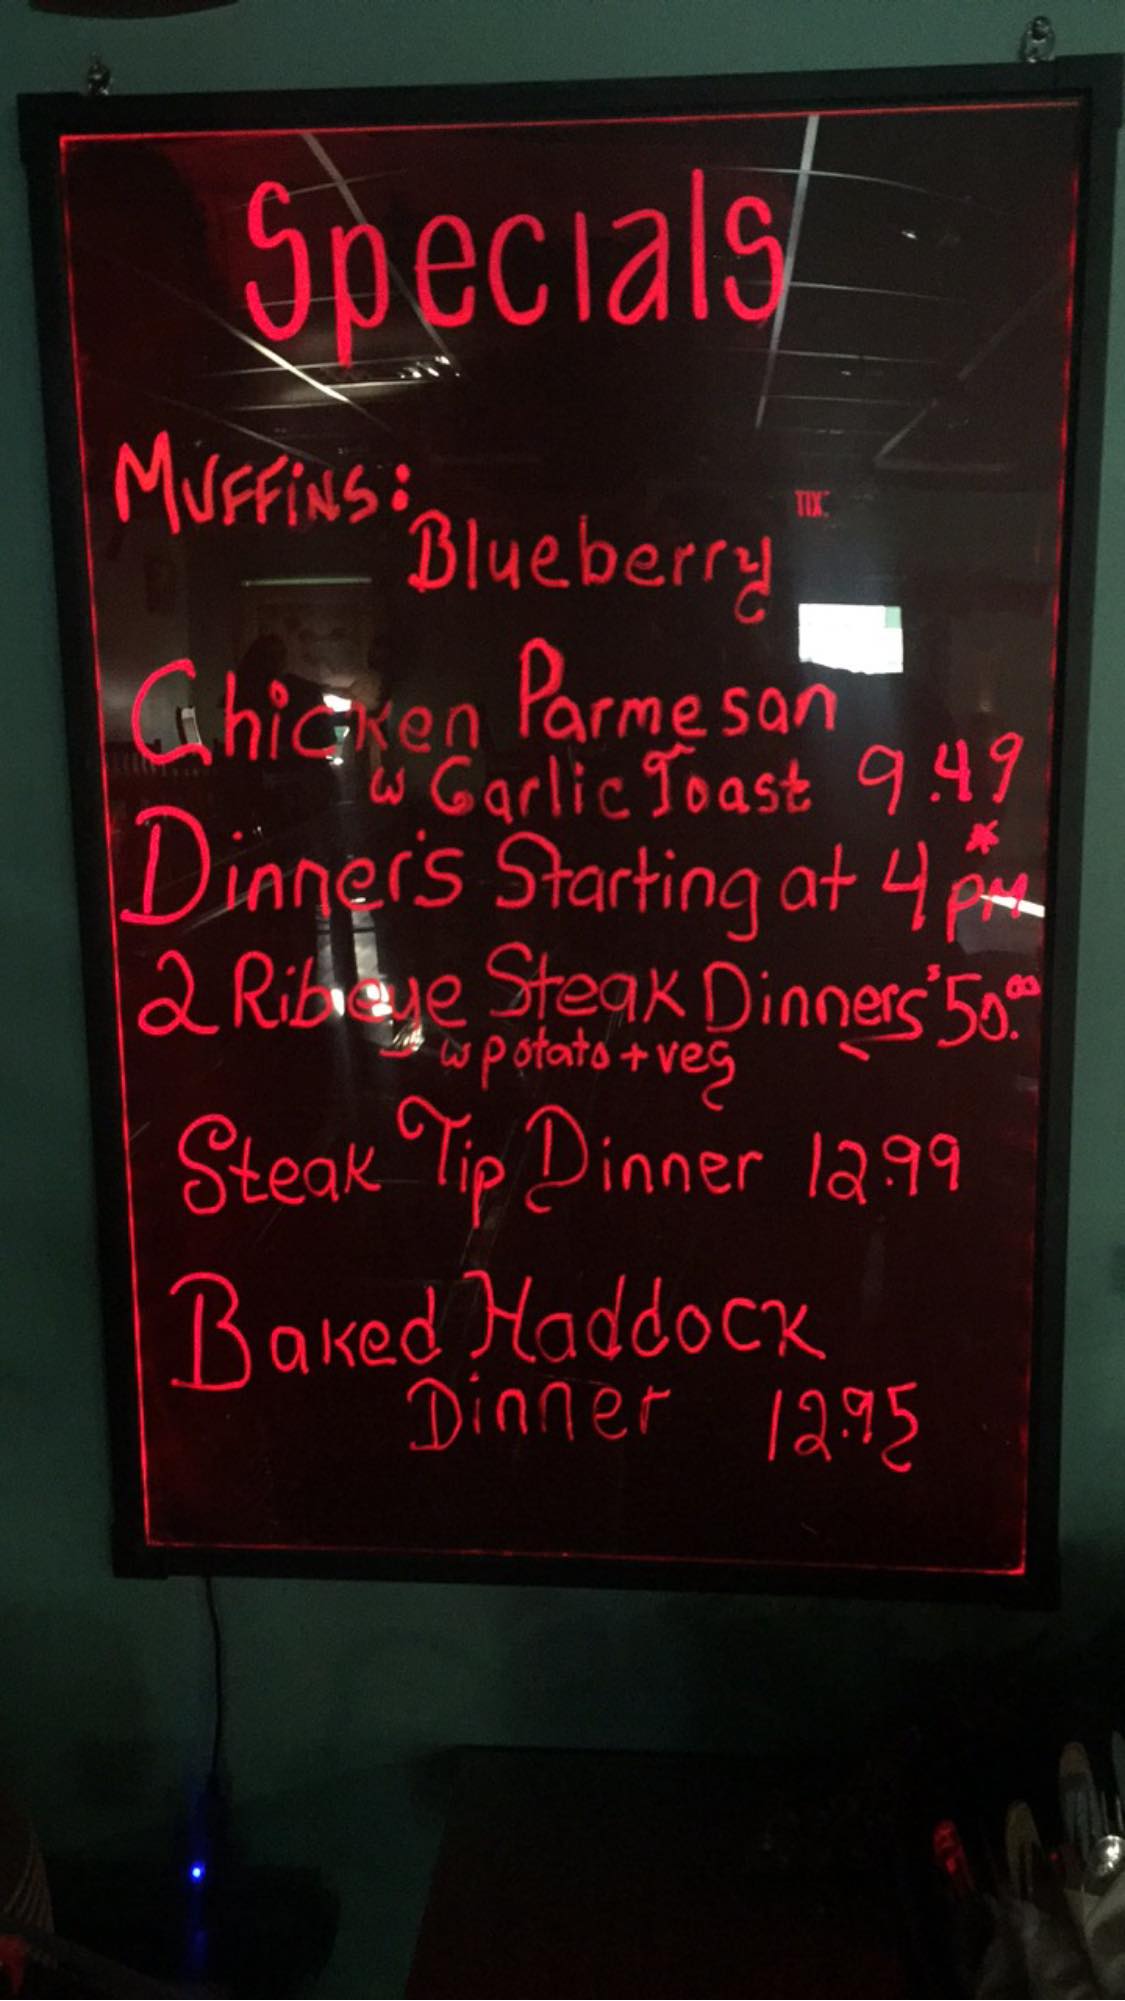 Specials
MUFFiNS:
Blueberry
Chicken Parmesan
w Garlic Toast 9.49
*
Dinner's Starting at 4 pm
2 Ribeye Steak Dinners $50.00
w potato + veg
Steak Tip Dinner 12.99
Baked Haddock
Dinner 12.95